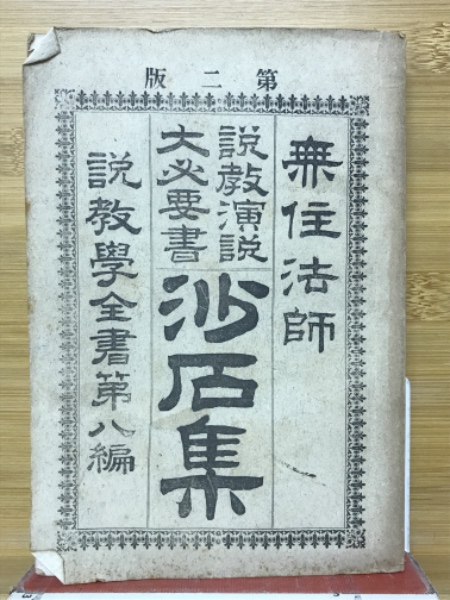 第二版
無住法師
説教演説
大必要書
沙石集
説教學全書第八編